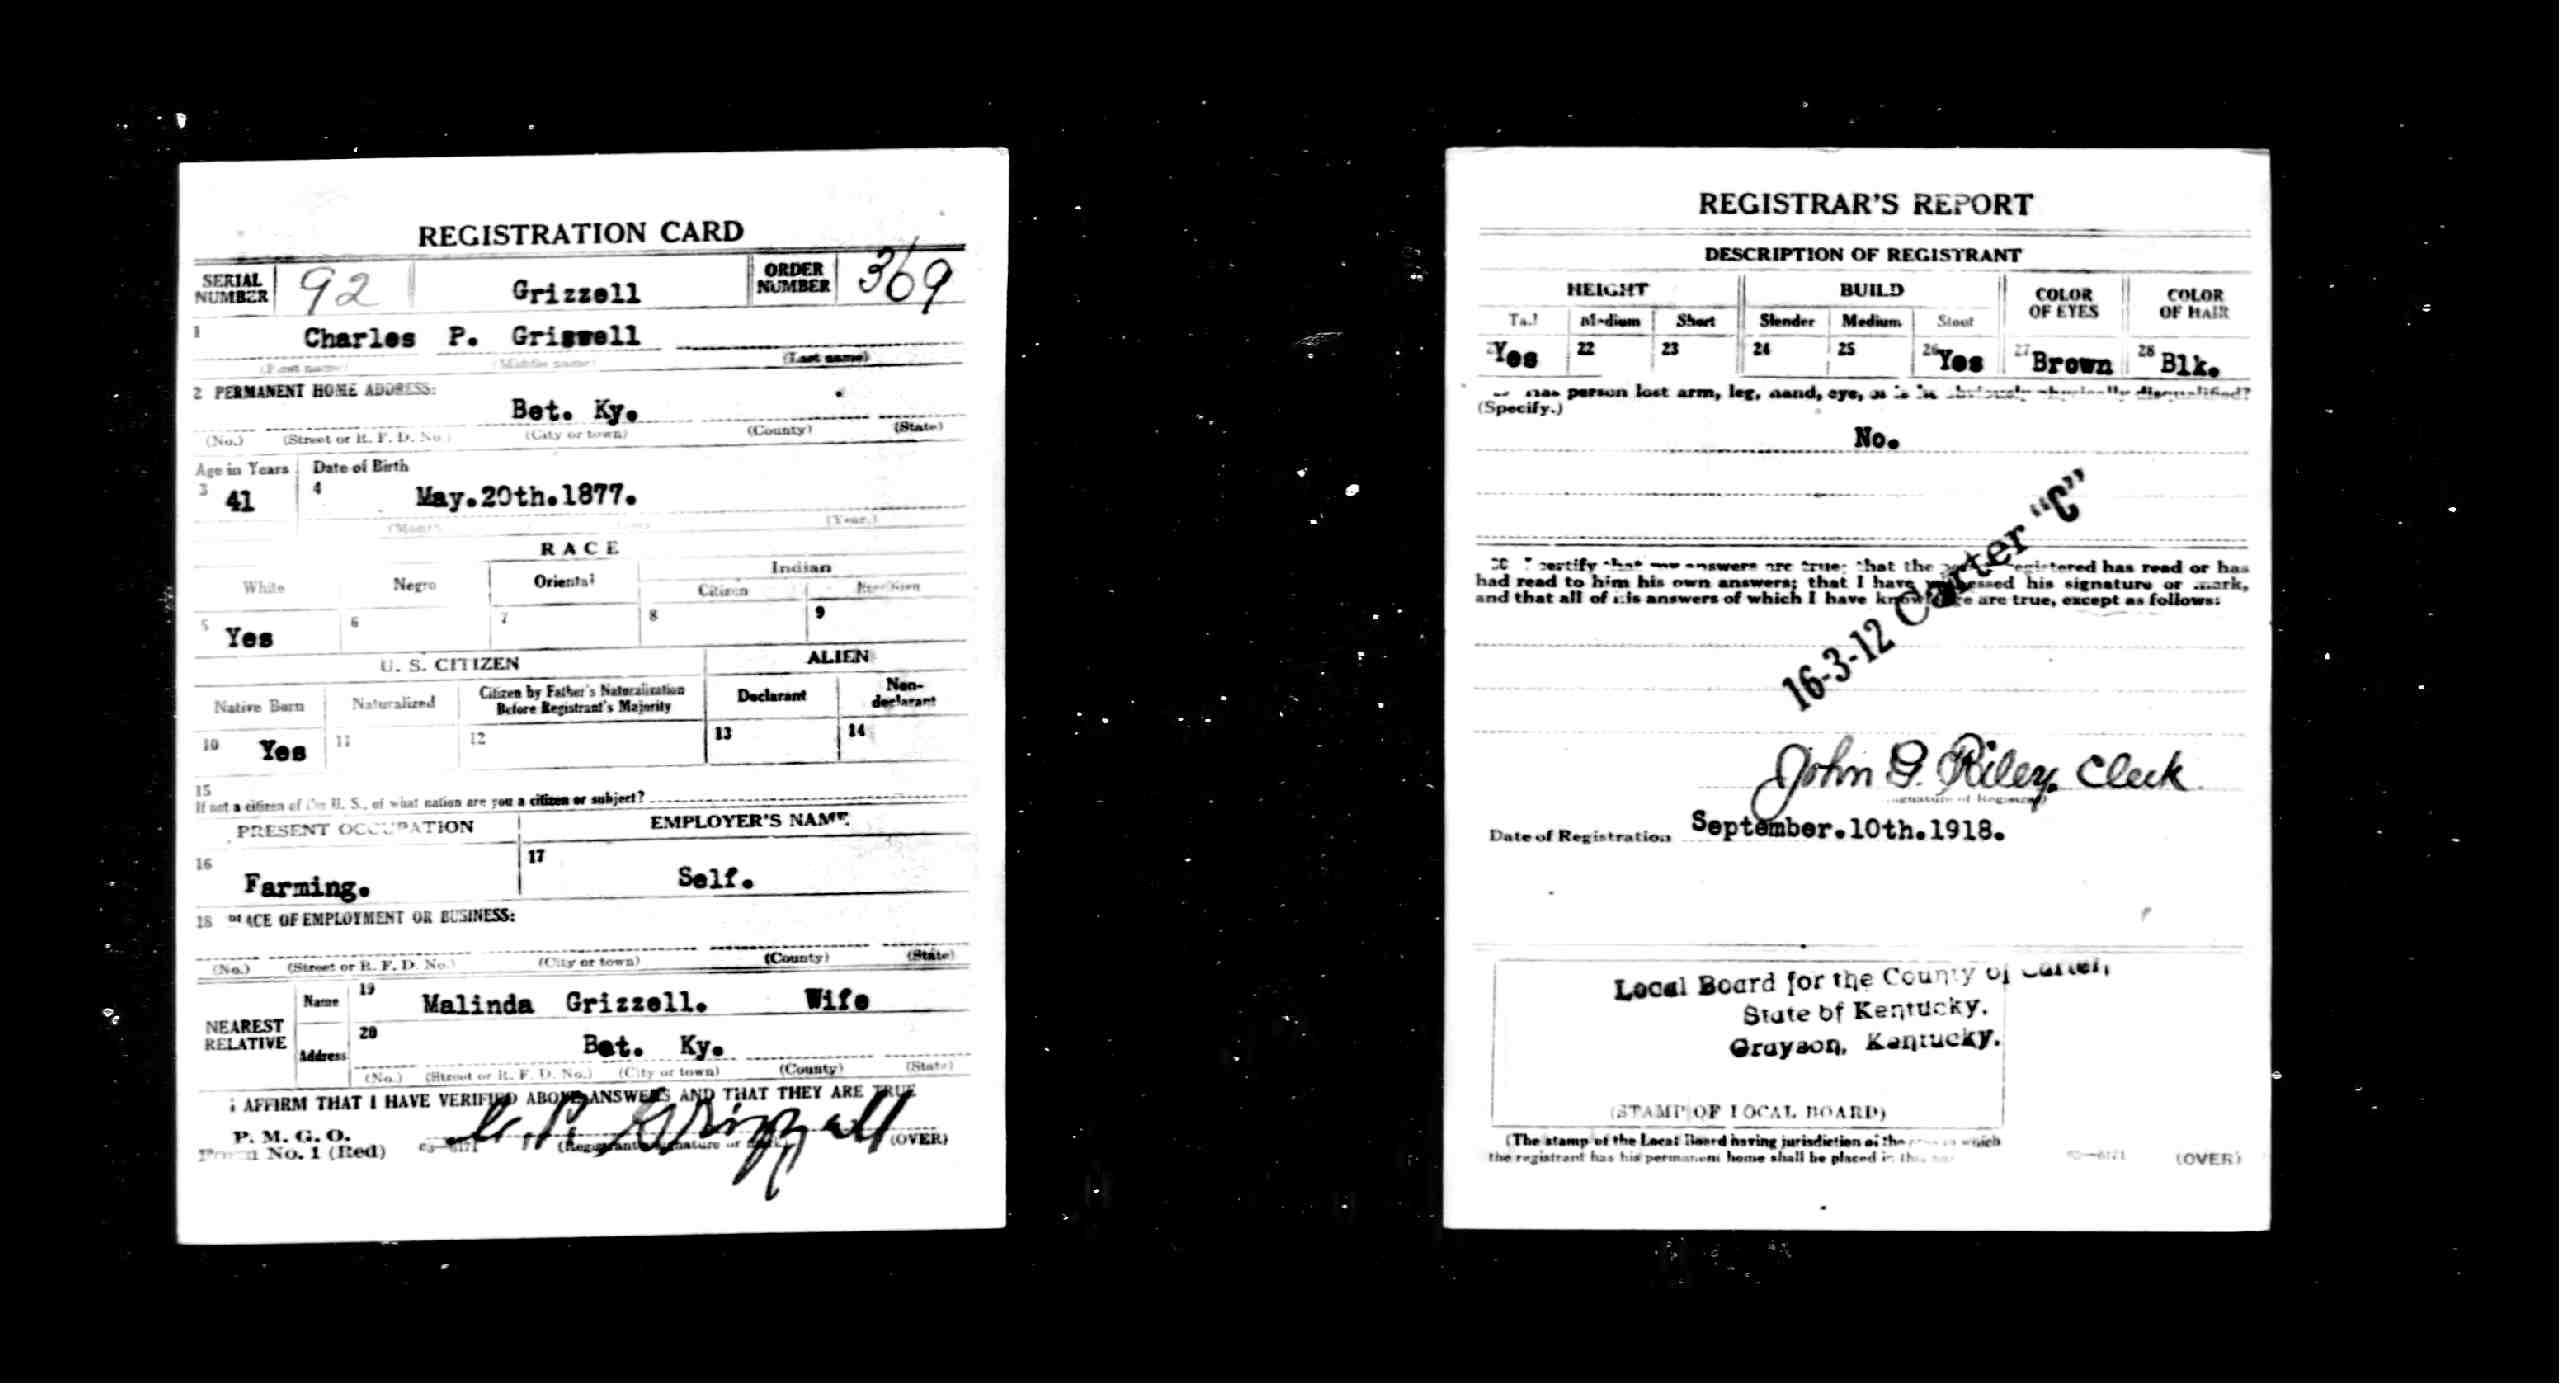 REGISTRATION CARD
SERIAL NUMBER 92 Grizzell ORDER NUMBER 369
1 Charles P. Griswell
(First name) (Middle name) (Last name)
2 PERMANENT HOME ADDRESS:
Bet. Ky.
(No.) (Street or R. F. D. No.) (City or town) (County) (State)
Age in Years Date of Birth
3 41 4 May.20th.1877.
(Month) (Year.)
RACE
White Negro Oriental Indian
Citizen
5 Yes 6 7 8 9
U. S. CITIZEN ALIEN
Native Born Naturalized Citizen by Father's Naturalization Before Registrant's Majority Declarant Non-declarant
10 Yes 11 12 13 14
15
If not a citizen of the U. S., of what nation are you a citizen or subject?
PRESENT OCCUPATION EMPLOYER'S NAME
16 Farming. 17 Self.
18 PLACE OF EMPLOYMENT OR BUSINESS:
(No.) (Street or R. F. D. No.) (City or town) (County) (State)
NEAREST RELATIVE Name 19 Malinda Grizzell. Wife
Address 20 Bet. Ky.
(No.) (Street or R. F. D. No.) (City or town) (County) (State)
I AFFIRM THAT I HAVE VERIFIED ABOVE ANSWERS AND THAT THEY ARE TRUE
P. M. G. O.
Form No. 1 (Red) C. P. Grizzell (OVER)
(Registrant's signature or mark)
REGISTRAR'S REPORT
DESCRIPTION OF REGISTRANT
HEIGHT BUILD COLOR OF EYES COLOR OF HAIR
Tall Medium Short Slender Medium Stout
Yes 22 23 24 25 26 Yes 27 Brown 28 Blk.
Has person lost arm, leg, hand, eye, or is he obviously physically disqualified?
(Specify.)
No.
30 I certify that my answers are true; that the person registered has read or has
had read to him his own answers; that I have witnessed his signature or mark,
and that all of his answers of which I have knowledge are true, except as follows:
16-3-12 Carter "C"
John G. Riley. Clerk
(Signature of Registrar)
Date of Registration September.10th.1918.
Local Board for the County of Carter,
State of Kentucky.
Grayson, Kentucky.
(STAMP OF LOCAL BOARD)
(The stamp of the Local Board having jurisdiction of the area in which
the registrant has his permanent home shall be placed in this box.
(OVER)